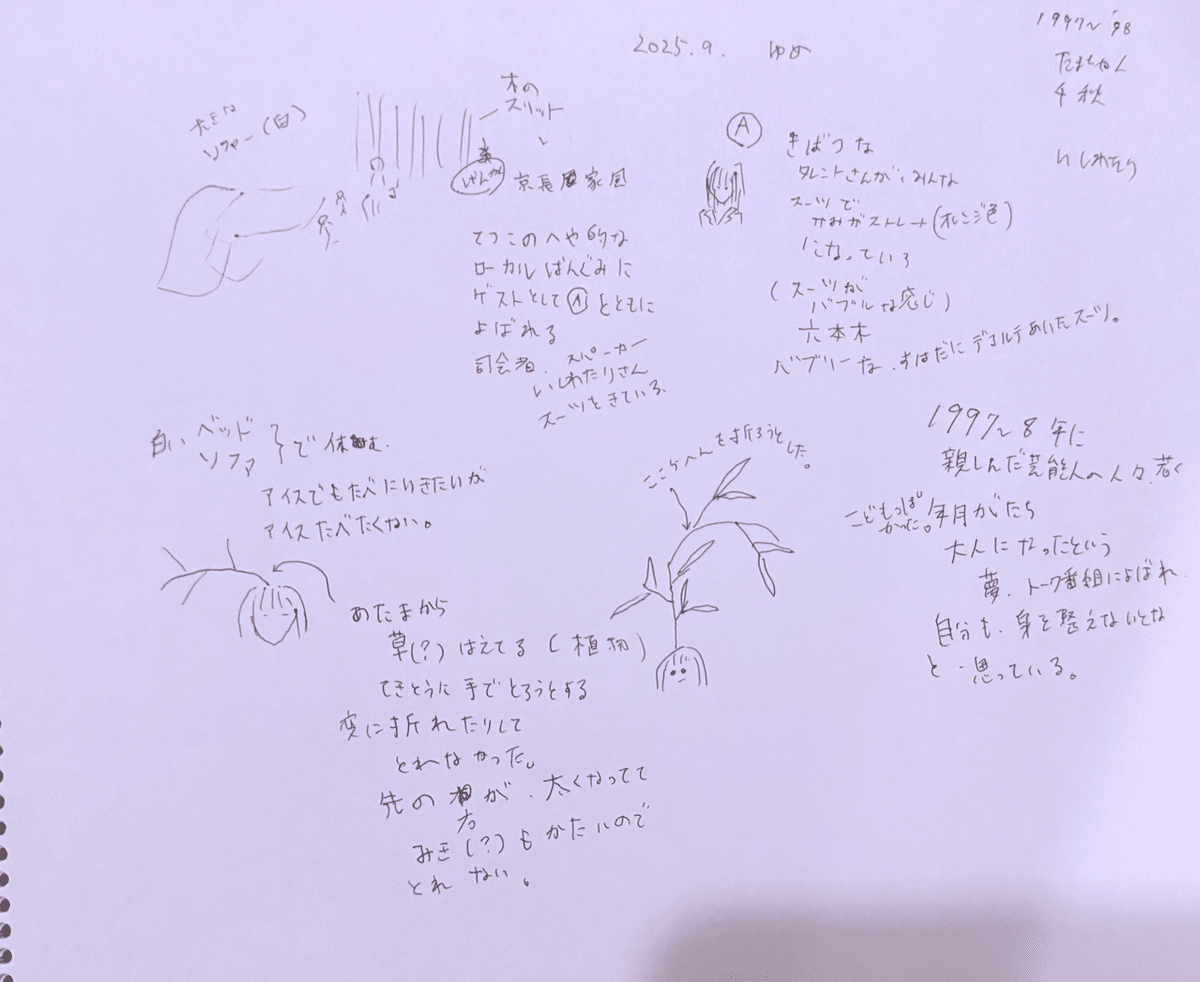 2025.9. ゆめ
1997〜'98
たまちゃん
千秋
いしわたり
大きな
ソファー(白)
木の
スリット
げんかん
京長家風
てつこのへや的な
ローカルばんぐみに
ゲストとしてAとともに
よばれる
司会者、スパーカー
いしわたりさん
スーツをきている。
A
きばつな
タレントさんが、みんな
スーツで
かみがストレート(オレンジ色)
になっている
(スーツが
バブルな感じ)
六本木
バブリーな、すはだにデコルテあいたスーツ。
白いベッド
ソファ
で休む。
アイスでもたべにいきたいが
アイスたべたくない。
あたまから
草(?)はえてる(植物)
てきとうに手でとろうとする
変に折れたりして
とれなかった。
先の方が、太くなってて
みき(?)もかたいので
とれない。
ここらへんを折ろうとした。
1997〜8年に
親しんだ芸能人の人々、若く
こどもっぽかった。年月がたち
大人になったという
夢、トーク番組によばれ
自分も、身を整えないとな
と思っている。